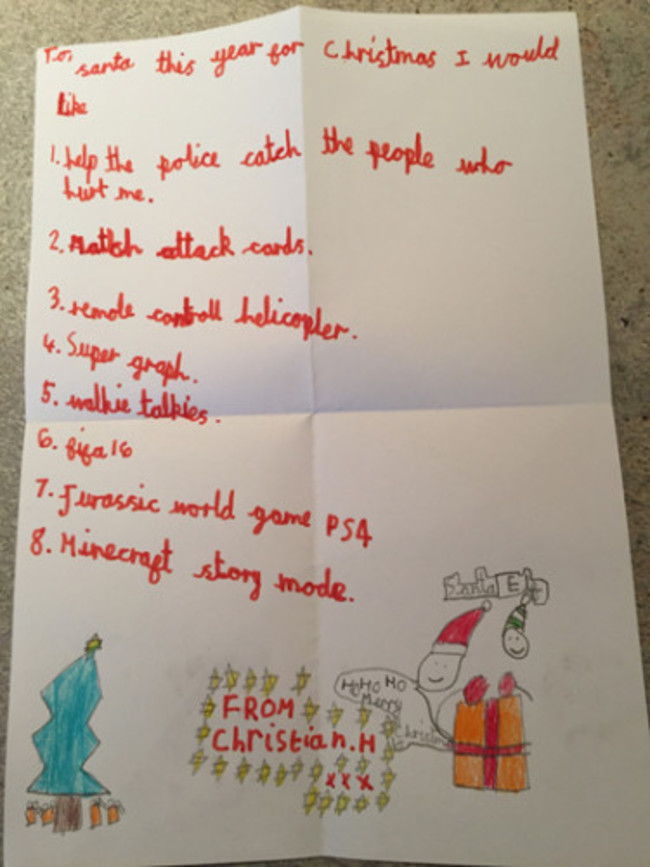 To, santa this year for Christmas I would
like
1. help the police catch the people who
hurt me.
2. Match attack cards.
3. remole controll helicopler.
4. Super graph.
5. walkie talkies.
6. fifa 16
7. Jurassic world game PS4
8. Minecraft story mode.
Santa Elf
HoHo HO
Merry
Christmas
FROM
Christian.H
xxx